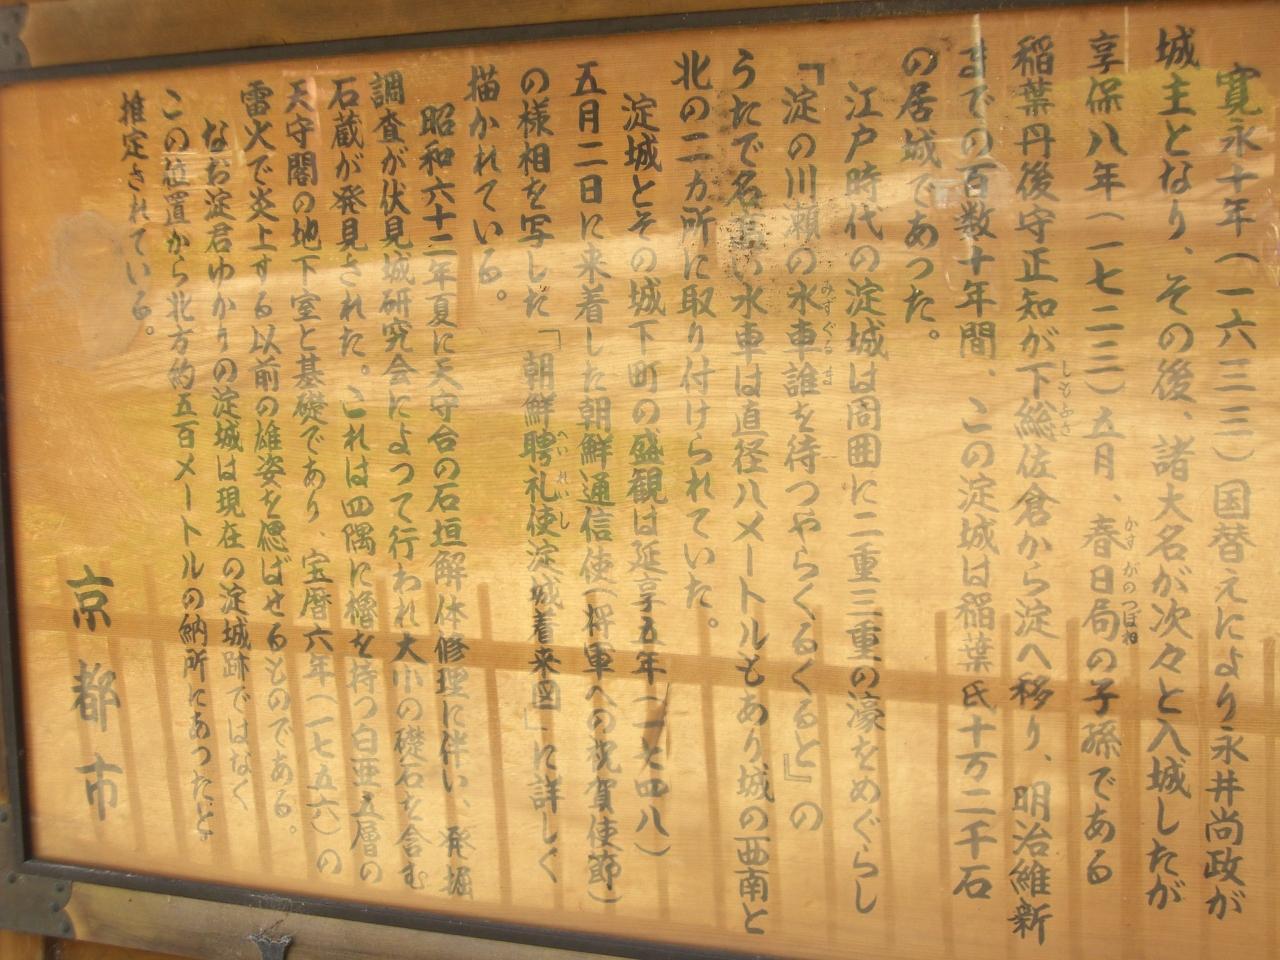 寛永十年(一六三三)国替えにより永井尚政が
城主となり、その後、諸大名が次々と入城したが
享保八年(一七二三)五月、春日局の子孫である
かすがのつぼね
稲葉丹後守正知が下総佐倉から淀へ移り、明治維新
しもふさ
までの百数十年間、この淀城は稲葉氏十万二千石
の居城であった。
江戸時代の淀城は周囲に二重三重の濠をめぐらし
「淀の川瀬の水車誰を待つやらくるくると』の
みずぐるま
うたで名高い水車は直径八メートルもあり城の西南と
北の二カ所に取り付けられていた。
淀城とその城下町の盛観は延享五年(一七四八)
五月二日に来着した朝鮮通信使(将軍への祝賀使節)
の様相を写した「朝鮮聘礼使淀城着来図」に詳しく
へいれいし
描かれている。
昭和六十二年夏に天守台の石垣解体修理に伴い、発掘
調査が伏見城研究会によって行われ大小の礎石を含む
石蔵が発見された。これは四隅に櫓を持つ白亜五層の
天守閣の地下室と基礎であり、宝暦六年(一七五六)の
雷火で炎上する以前の雄姿を偲ばせるものである。
なお淀君ゆかりの淀城は現在の淀城跡ではなく
この位置から北方約五百メートルの納所にあったと
推定されている。
京都市